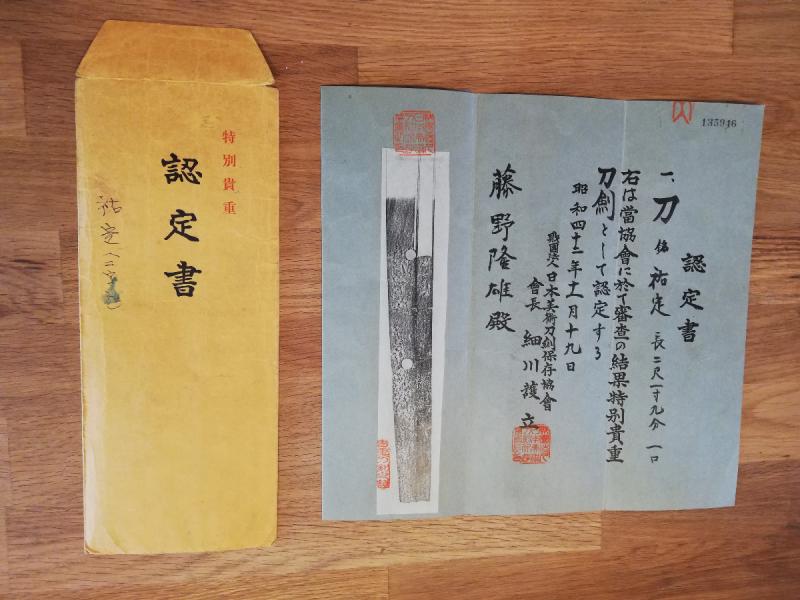 特別貴重
認定書
祐定(二字
135946
認定書
一、刀 銘 祐定 長二尺一寸九分 一口
右は當協會に於て審査の結果特別貴重
刀劍として認定する
昭和四十二年十一月十九日
財團法人日本美術刀劍保存協會
會長 細川護立
藤野隆雄殿